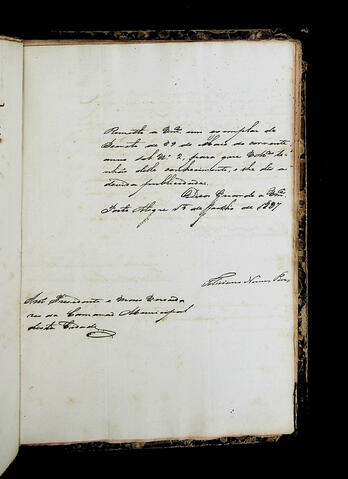 Remetto a Vmces um exemplar do
Decreto de 29 de Maio do corrente
anno sob Nº 2. para que Vmces te-
nhão delle conhecimento, e lhe dêe a
devida publicidade.
Deos Guarde a Vmces
Porto Alegre de Junho de 1837
Feliciano Nunes Pires
Snrs Presidente e mais Vereado
res da Camara Municipal
desta Cidade